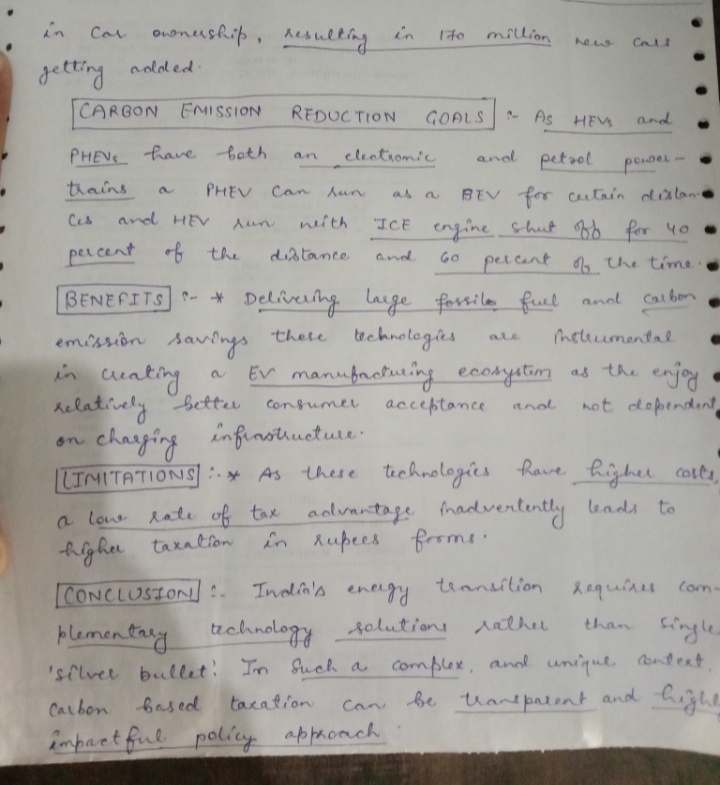 in car ownership, resulting in 170 million new cars
getting added.
CARBON EMISSION REDUCTION GOALS :- As HEVs and
PHEVs have both an electronic and petrol power-
trains a PHEV can run as a BEV for certain distan-
ces and HEV run with ICE engine shut off for 40
percent of the distance and 60 percent of the time.
BENEFITS :- * Delivering large fossile fuel and carbon
emission savings these technologies are instrumental
in creating a EV manufacturing ecosystem as the enjoy
relatively better consumer acceptance and not dependent
on charging infrastructure.
LIMITATIONS :- * As these technologies have higher costs,
a low rate of tax advantage inadvertently leads to
higher taxation in rupees froms.
CONCLUSION :- India's energy transition requires com-
plementary technology solutions rather than single
'silver bullet'. In such a complex, and unique context,
carbon based taxation can be transparent and highl
impactful policy approach.